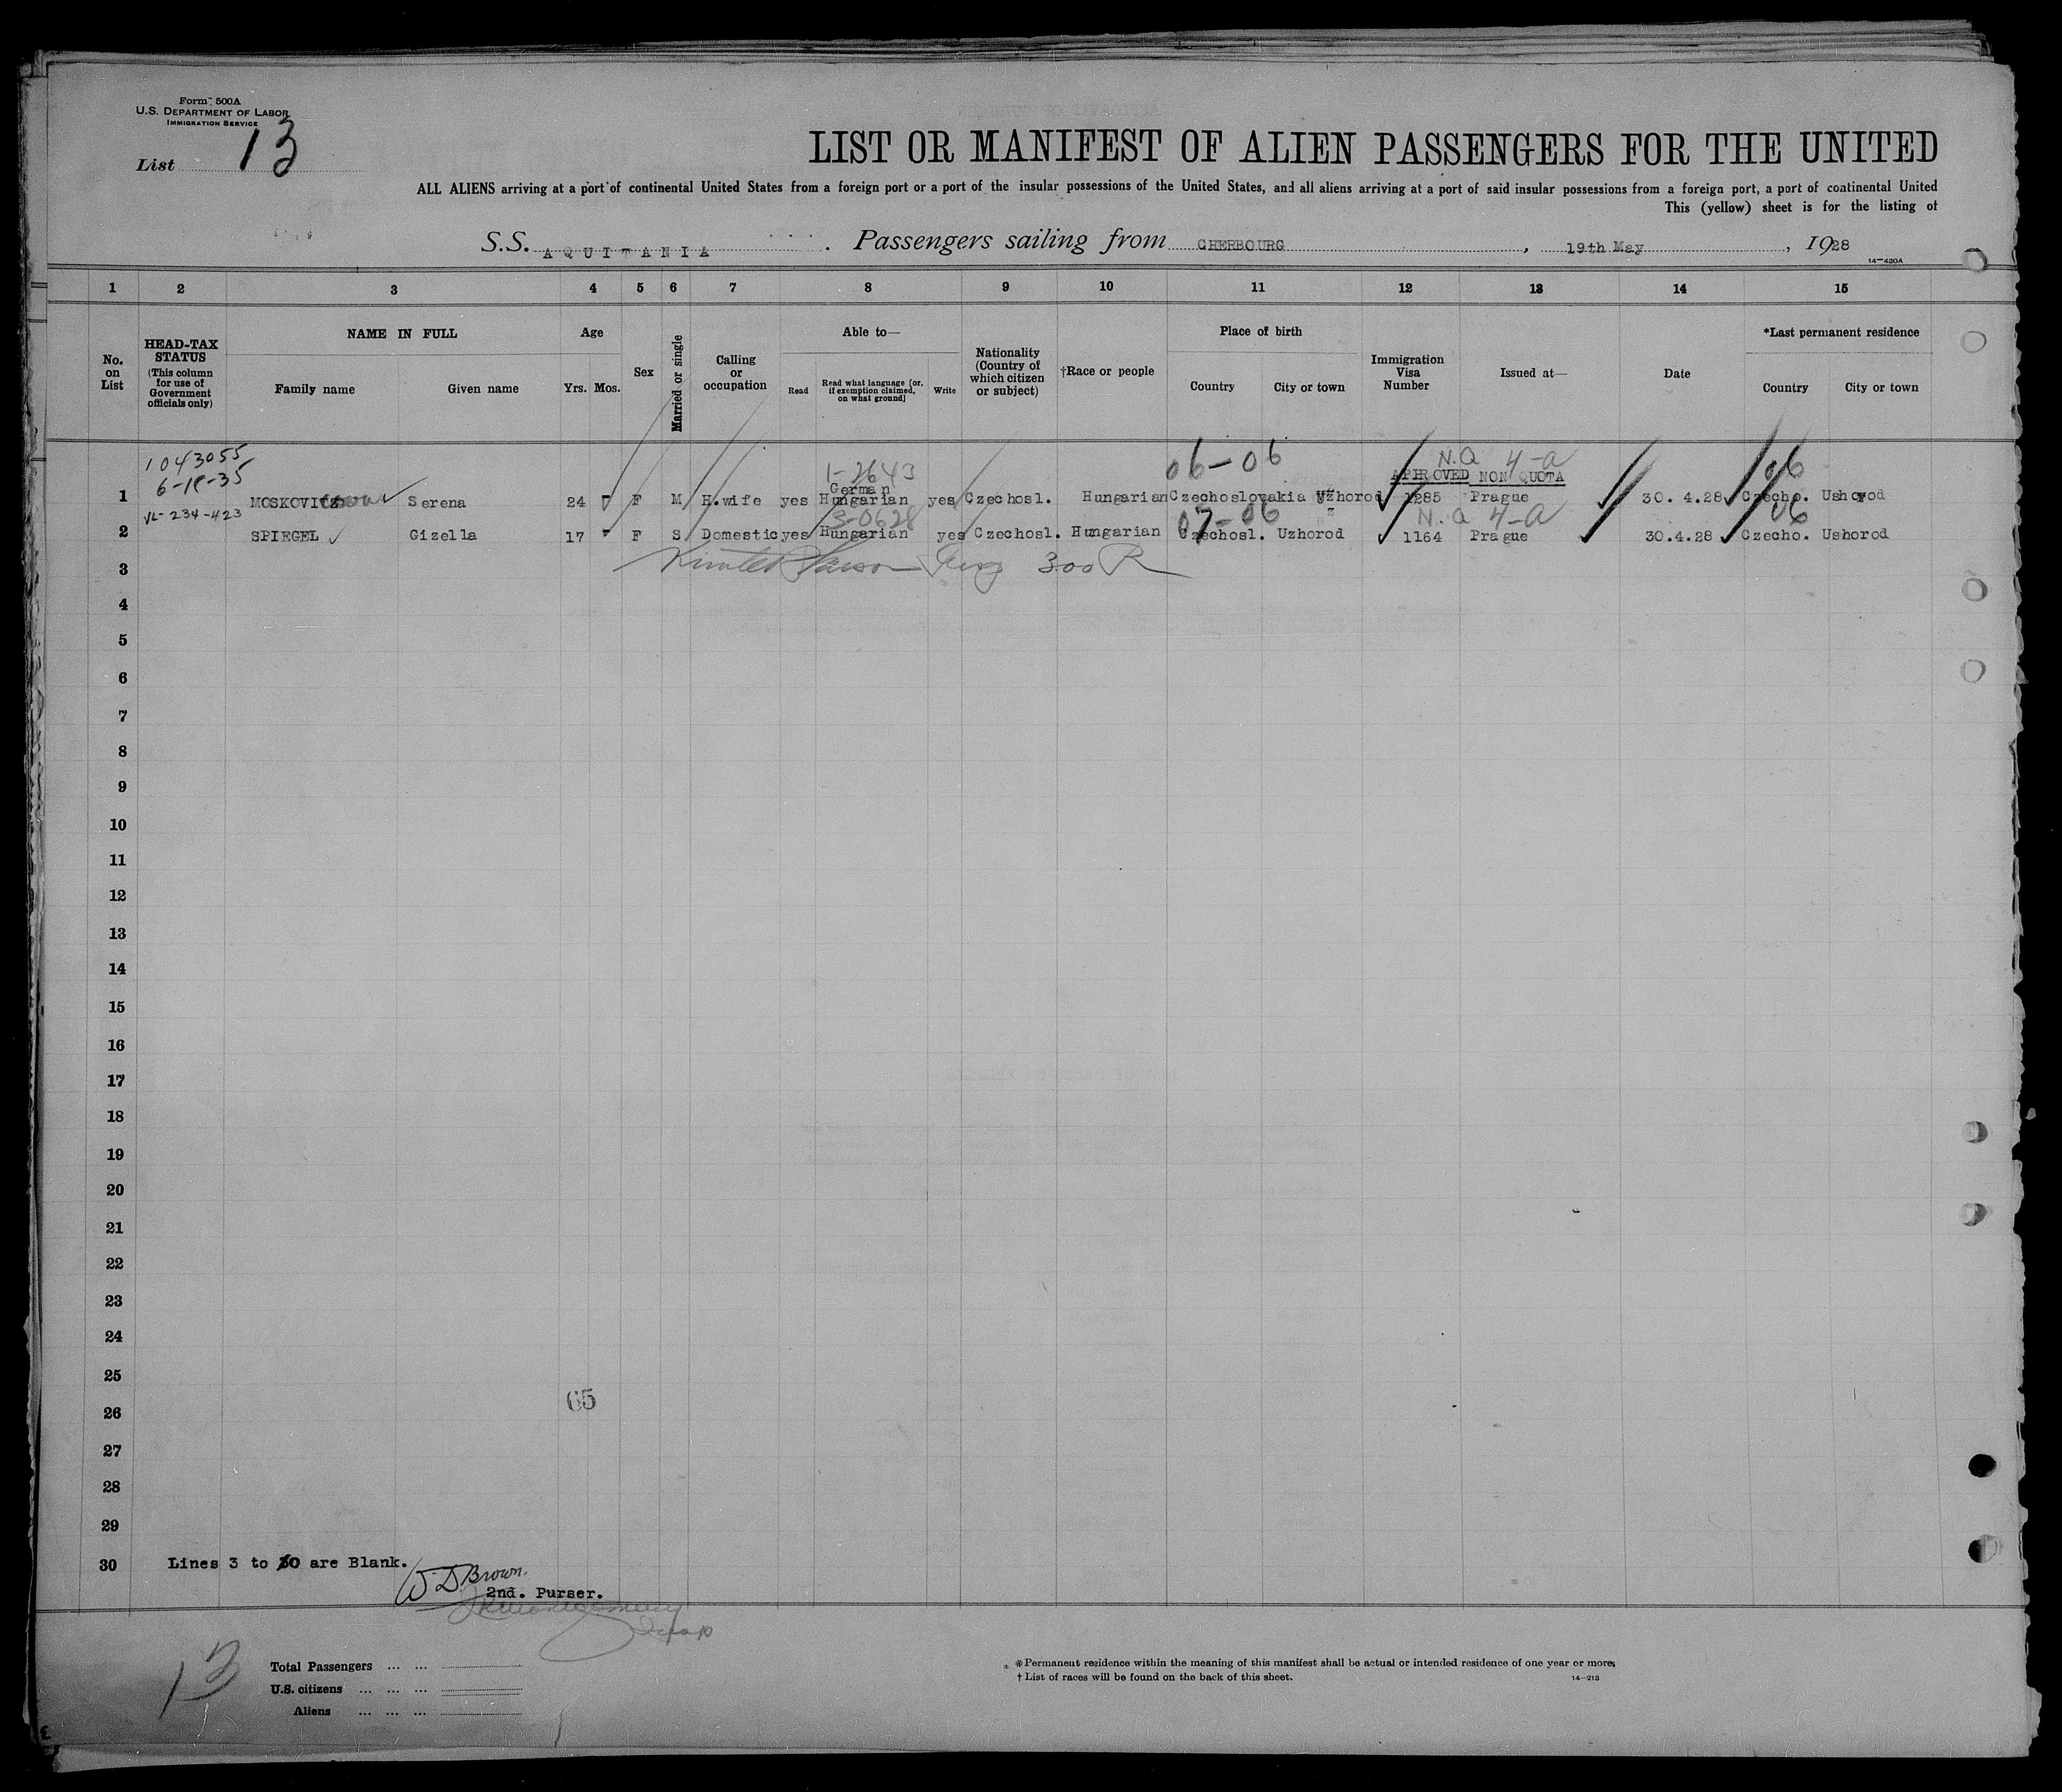 Form 500A
U.S. DEPARTMENT OF LABOR
IMMIGRATION SERVICE
List 13
LIST OR MANIFEST OF ALIEN PASSENGERS FOR THE UNITED
ALL ALIENS arriving at a port of continental United States from a foreign port or a port of the insular possessions of the United States, and all aliens arriving at a port of said insular possessions from a foreign port, a port of continental United
This (yellow) sheet is for the listing of
S.S. AQUITANIA. Passengers sailing from CHERBOURG, 19th May, 1928
14-430A
1 2 3 4 5 6 7 8 9 10 11 12 13 14 15
No. on List
HEAD-TAX STATUS (This column for use of Government officials only)
NAME IN FULL
Family name Given name
Age
Yrs. Mos.
Sex
Married or single
Calling or occupation
Able to—
Read
Read what language [or, if exemption claimed, on what ground]
Write
Nationality (Country of which citizen or subject)
†Race or people
Place of birth
Country City or town
Immigration Visa Number
Issued at—
Date
*Last permanent residence
Country City or town
1043055
6-18-35
1-2643 06-06 N.Q 4-a 06
German APPROVED NON QUOTA
1 MOSKOVITS Serena 24 F M H.wife yes Hungarian yes Czechosl. Hungarian Czechoslovakia Uzhorod 1285 Prague 30.4.28 Czecho. Ushorod
VL-234-423 3-0628 07-06 N.Q 4-a 06
2 SPIEGEL Gizella 17 F S Domestic yes Hungarian yes Czechosl. Hungarian Czechosl. Uzhorod 1164 Prague 30.4.28 Czecho. Ushorod
3 300 R
4
5
6
7
8
9
10
11
12
13
14
15
16
17
18
19
20
21
22
23
24
25
65
26
27
28
29
30 Lines 3 to 30 are Blank.
W D Brown.
2nd. Purser.
13
Total Passengers ... ...
U.S. citizens ... ... ...
Aliens ... ... ...
*Permanent residence within the meaning of this manifest shall be actual or intended residence of one year or more.
† List of races will be found on the back of this sheet.
14-213